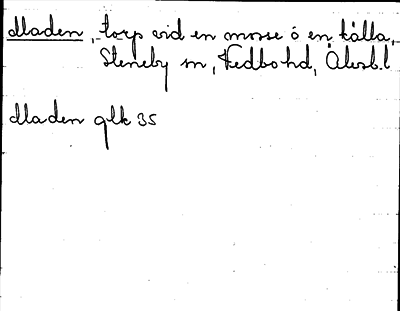 Maden, torp vid en mosse o en källa,
Steneby sn, Vedbo hd, Älvsb. l
Maden glk 35